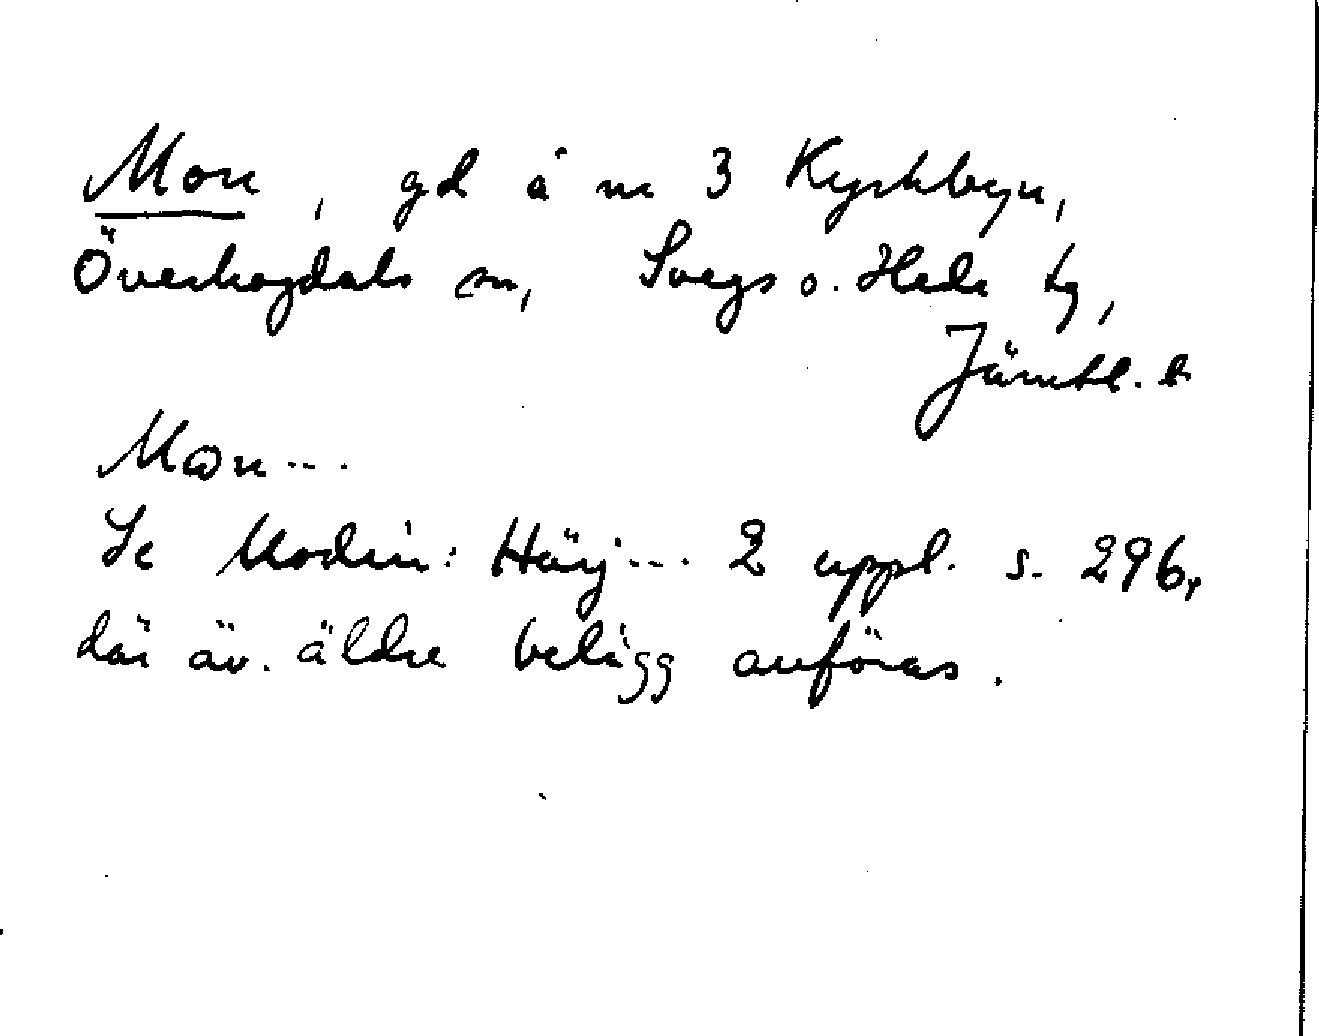 Mon, gd å nr 3 Kyrkbyn,
Överhogdals sn, Svegs o. Hede tg,
Jämtl. l.
Mon---
Se Modin: Härj--- 2 uppl. s. 296,
där äv. äldre belägg anföras.